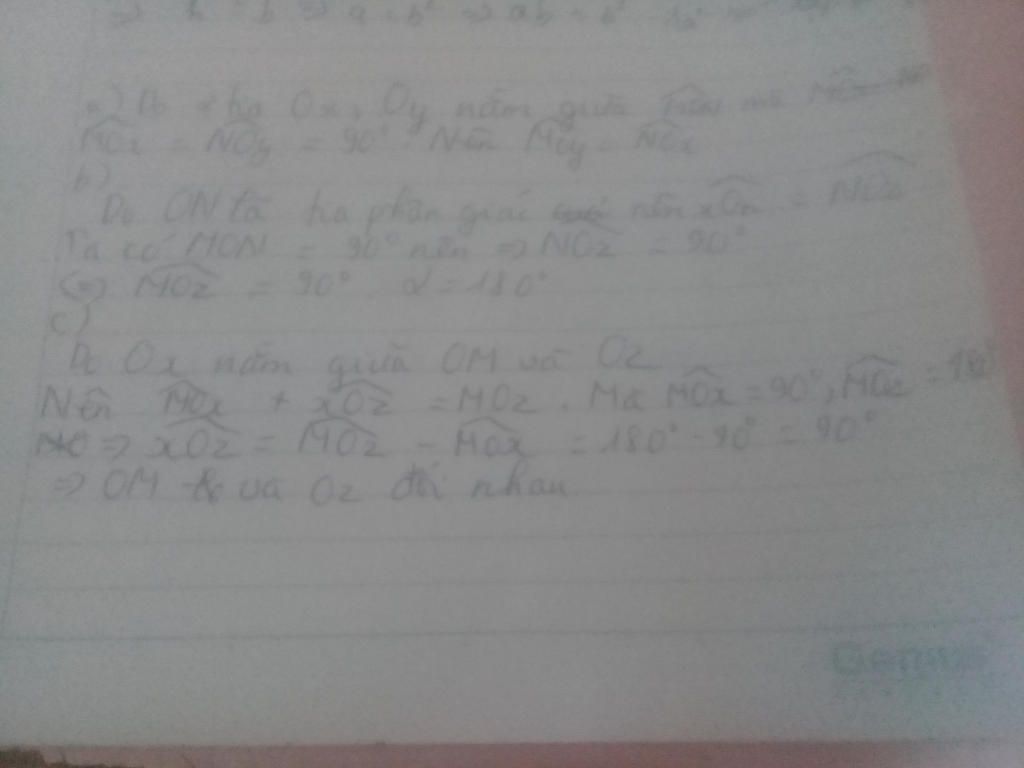 a) Do 2 ha Ox, Oy nằm giữa mà
MOx = NOy = 90° Nên MOy = NOx
b)
Do ON là ha phân giác nên xOn = NOz
Ta có MON = 90° nên => NOz = 90°
(=) MOz = 90° . 2 = 180°
c)
Do Ox nằm giữa OM và Oz
Nên MOx + xOz = MOz . Mà MOx = 90°, MOz = 180°
=> xOz = MOz - MOx = 180° - 90° = 90°
=> OM và Oz đối nhau
Genius